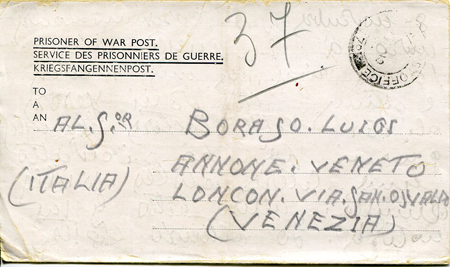 37
PRISONER OF WAR POST.
SERVICE DES PRISONNIERS DE GUERRE.
KRIEGSFANGENNENPOST.
TO
A
AN
AL. S.OR BORASO. LUIGI
ANNONE. VENETO
(ITALIA) LONCON. VIA. SAN. OSVALDO
(VENEZIA)
OFFICE